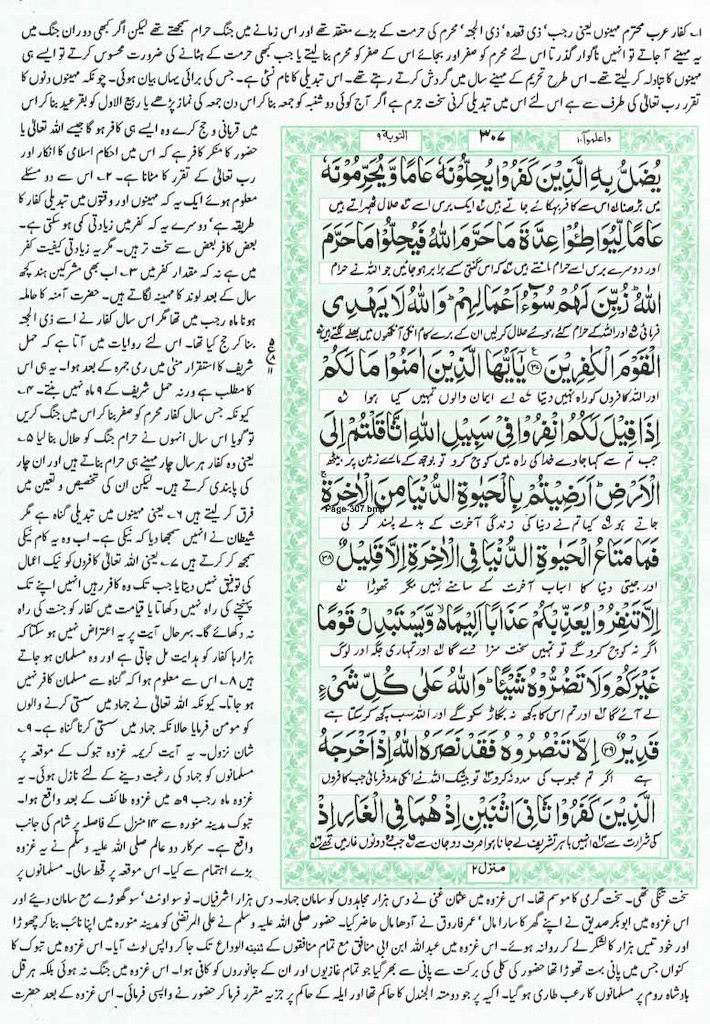 ۱۔ کفار عرب محترم مہینوں یعنی رجب' ذی قعدہ' ذی الحجہ' محرم کی حرمت کے بڑے معتقد تھے اور اس زمانے میں جنگ حرام سمجھتے تھے لیکن اگر کبھی دوران جنگ میں
یہ مہینے آ جاتے تو انہیں ناگوار گذرتا اس لئے محرم کو صفر اور بجائے اس کے صفر کو محرم بنا لیتے یا جب کبھی حرمت کے ہٹانے کی ضرورت محسوس کرتے تو ایسے ہی
مہینوں کا تبادلہ کر لیتے تھے۔ اس طرح تحریم کے مہینے سال میں گردش کرتے رہتے تھے۔ اس تبدیلی کا نام نسئی ہے۔ جس کی برائی یہاں بیان ہوئی۔ چونکہ مہینوں دنوں کا
تقرر رب تعالٰی کی طرف سے ہے اس لئے اس میں تبدیلی کرنی سخت جرم ہے اگر آج کوئی دو شنبہ کو جمعہ بنا کر اس دن جمعہ کی نماز پڑھے یا ربیع الاول کو بقر عید بنا کر اس
میں قربانی و حج کرے وہ ایسے ہی کافر ہو گا جیسے اللہ تعالٰی یا
حضور کا منکر کافر ہے کہ اس میں احکام اسلامی کا انکار اور
رب تعالٰی کے تقرر کا مٹانا ہے۔ ۲۔ اس سے دو مسئلے
معلوم ہوئے ایک یہ کہ مہینوں اور وقتوں میں تبدیلی کفار کا
طریقہ ہے' دوسرے یہ کہ کفر میں زیادتی کمی ہو سکتی ہے۔
بعض کافر بعض سے سخت تر ہیں۔ مگر یہ زیادتی کیفیت کفر
میں ہے نہ کہ مقدار کفر میں ۳۔ اب بھی مشرکین ہند کچھ
سال کے بعد لوند کا مہینہ لگاتے ہیں۔ حضرت آمنہ کا حاملہ
ہونا ماہ رجب میں تھا مگر اس سال کفار نے اسے ذی الحجہ
بنا کر حج کیا تھا۔ اس لئے روایات میں آتا ہے کہ حمل
شریف کا استقرار منٰی میں رمی جمرہ کے بعد ہوا۔ یہ ہی اس
کا مطلب ہے ورنہ حمل شریف کے ۹ ماہ نہیں بنتے۔ ۴۔
کیونکہ جس سال کفار محرم کو صفر بنا کر اس میں جنگ کریں
تو گویا اس سال انہوں نے حرام جنگ کو حلال بنا لیا ۵۔
یعنی وہ کفار ہر سال چار مہینے ہی حرام بناتے ہیں اور ان چار
کی پابندی کرتے ہیں۔ لیکن ان کی تخصیص و تعین میں
فرق کر لیتے ہیں ۶۔ یعنی مہینوں میں تبدیلی گناہ ہے مگر
شیطان نے انہیں سمجھا دیا کہ نیکی ہے۔ اب وہ یہ کام نیکی
سمجھ کر کرتے ہیں ۷۔ یعنی اللہ تعالٰی کافروں کو نیک اعمال
کی توفیق نہیں دیتا یا جب تک وہ کافر رہیں انہیں اپنے تک
پہنچنے کی راہ نہیں دکھاتا یا قیامت میں کفار کو جنت کی راہ
نہ دکھائے گا۔ بہرحال آیت پر یہ اعتراض نہیں ہو سکتا کہ
ہزارہا کفار کو ہدایت مل جاتی ہے اور وہ مسلمان ہو جاتے
ہیں ۸۔ اس سے معلوم ہوا کہ گناہ سے مسلمان کافر نہیں
ہو جاتا۔ کیونکہ اللہ تعالٰی نے جہاد میں سستی کرنے والوں
کو مومن فرمایا حالانکہ جہاد میں سستی کرنا گناہ ہے۔ ۹۔
شان نزول۔ یہ آیت کریمہ غزوہ تبوک کے موقعہ پر
مسلمانوں کو جہاد کی رغبت دینے کے لئے نازل ہوئی۔ یہ
غزوہ ماہ رجب ۹ھ میں غزوہ طائف کے بعد واقع ہوا۔
تبوک مدینہ منورہ سے ۱۴ منزل کے فاصلہ پر شام کی جانب
واقع ہے۔ سرکار دو عالم صلی اللہ علیہ وسلم نے یہ غزوہ
بڑے اہتمام سے کیا۔ اس موقعہ پر قحط سالی۔ مسلمانوں پر
واعلموآ۱۰ ۳۰۷ التوبۃ ۹
يُضَلُّ بِهِ الَّذِيْنَ كَفَرُوْا يُحِلُّوْنَهٗ عَامًا وَّيُحَرِّمُوْنَهٗ
میں بڑھنا اس سے کافر بہکائے جاتے ہیں ایک برس اسے حلال ٹھہراتے ہیں
عَامًا لِّيُوَاطِئُوْا عِدَّةَ مَا حَرَّمَ اللّٰهُ فَيُحِلُّوْا مَا حَرَّمَ
اور دوسرے برس اسے حرام مانتے ہیں کہ اس گنتی کے برابر ہو جائیں جو اللہ نے حرام
اللّٰهُ ؕ زُيِّنَ لَهُمْ سُوْٓءُ اَعْمَالِهِمْ ؕ وَاللّٰهُ لَا يَهْدِى
فرمائی اور اللہ کے حرام کئے ہوئے حلال کر لیں ان کے برے کام انکی آنکھوں میں بھلے لگتے ہیں
الْقَوْمَ الْكٰفِرِيْنَ ﴿۳۷﴾ يٰۤاَيُّهَا الَّذِيْنَ اٰمَنُوْا مَا لَكُمْ
اور اللہ کافروں کو راہ نہیں دیتا اے ایمان والوں تمہیں کیا ہوا
اِذَا قِيْلَ لَكُمُ انْفِرُوْا فِىْ سَبِيْلِ اللّٰهِ اثَّاقَلْتُمْ اِلَى
جب تم سے کہا جاوے خدا کی راہ میں کوچ کرو تو بوجھ کے مارے زمین پر بیٹھ
الْاَرْضِ ؕ اَرَضِيْتُمْ بِالْحَيٰوةِ الدُّنْيَا مِنَ الْاٰخِرَةِ ۚ
Page-307.bmp
جاتے ہو کیا تم نے دنیا کی زندگی آخرت کے بدلے پسند کر لی
فَمَا مَتَاعُ الْحَيٰوةِ الدُّنْيَا فِى الْاٰخِرَةِ اِلَّا قَلِيْلٌ ﴿۳۸﴾
اور جیتی دنیا کا اسباب آخرت کے سامنے نہیں مگر تھوڑا
اِلَّا تَنْفِرُوْا يُعَذِّبْكُمْ عَذَابًا اَلِيْمًا ۙ وَّيَسْتَبْدِلْ قَوْمًا
اگر نہ کوچ کرو گے تو تمہیں سخت سزا دے گا اور تمہاری جگہ اور لوگ
غَيْرَكُمْ وَلَا تَضُرُّوْهُ شَيْـًٔا ؕ وَاللّٰهُ عَلٰى كُلِّ شَىْءٍ
لے آئے گا اور تم اس کا کچھ نہ بگاڑ سکو گے اور اللہ سب کچھ کر سکتا ہے
قَدِيْرٌ ﴿۳۹﴾ اِلَّا تَنْصُرُوْهُ فَقَدْ نَصَرَهُ اللّٰهُ اِذْ اَخْرَجَهُ
ہے اگر تم محبوب کی مدد نہ کرو تو بیشک اللہ نے انکی مدد فرمائی جب کافروں
الَّذِيْنَ كَفَرُوْا ثَانِىَ اثْنَيْنِ اِذْ هُمَا فِى الْغَارِ اِذْ
کی شرارت سے انہیں باہر تشریف لے جانا ہوا صرف دو جان سے جب وہ دونوں غار میں تھے
منزل۲
سخت تنگی تھی۔ سخت گرمی کا موسم تھا۔ اس غزوہ میں عثمان غنی نے دس ہزار مجاہدوں کو سامان جہاد۔ دس ہزار اشرفیاں۔ نو سو اونٹ' سو گھوڑے مع سامان دیئے اور
اس غزوہ میں ابوبکر صدیق نے اپنے گھر کا سارا مال' عمر فاروق نے آدھا مال حاضر کیا۔ حضور صلی اللہ علیہ وسلم نے علی المرتضٰی کو مدینہ منورہ میں اپنا نائب بنا کر چھوڑا
اور خود تیس ہزار کا لشکر لے کر روانہ ہوئے۔ اس غزوہ میں عبداللہ ابن ابی منافق مع تمام منافقوں کے ثنیۃ الوداع تک جا کر واپس لوٹ آیا۔ اس غزوہ میں تبوک کا
کنواں جس میں پانی بہت تھوڑا تھا حضور کی کلی کی برکت سے پانی سے بھر گیا جو تمام غازیوں اور ان کے جانوروں کو کافی ہوا۔ اس غزوہ میں جنگ نہ ہوئی بلکہ ہرقل
بادشاہ روم پر مسلمانوں کا رعب طاری ہو گیا۔ اکیدر پر جو دومتہ الجندل کا حاکم تھا اور ایلہ کے حاکم پر جزیہ مقرر فرما کر حضور نے واپسی فرمائی۔ اس غزوہ کے بعد حضرت